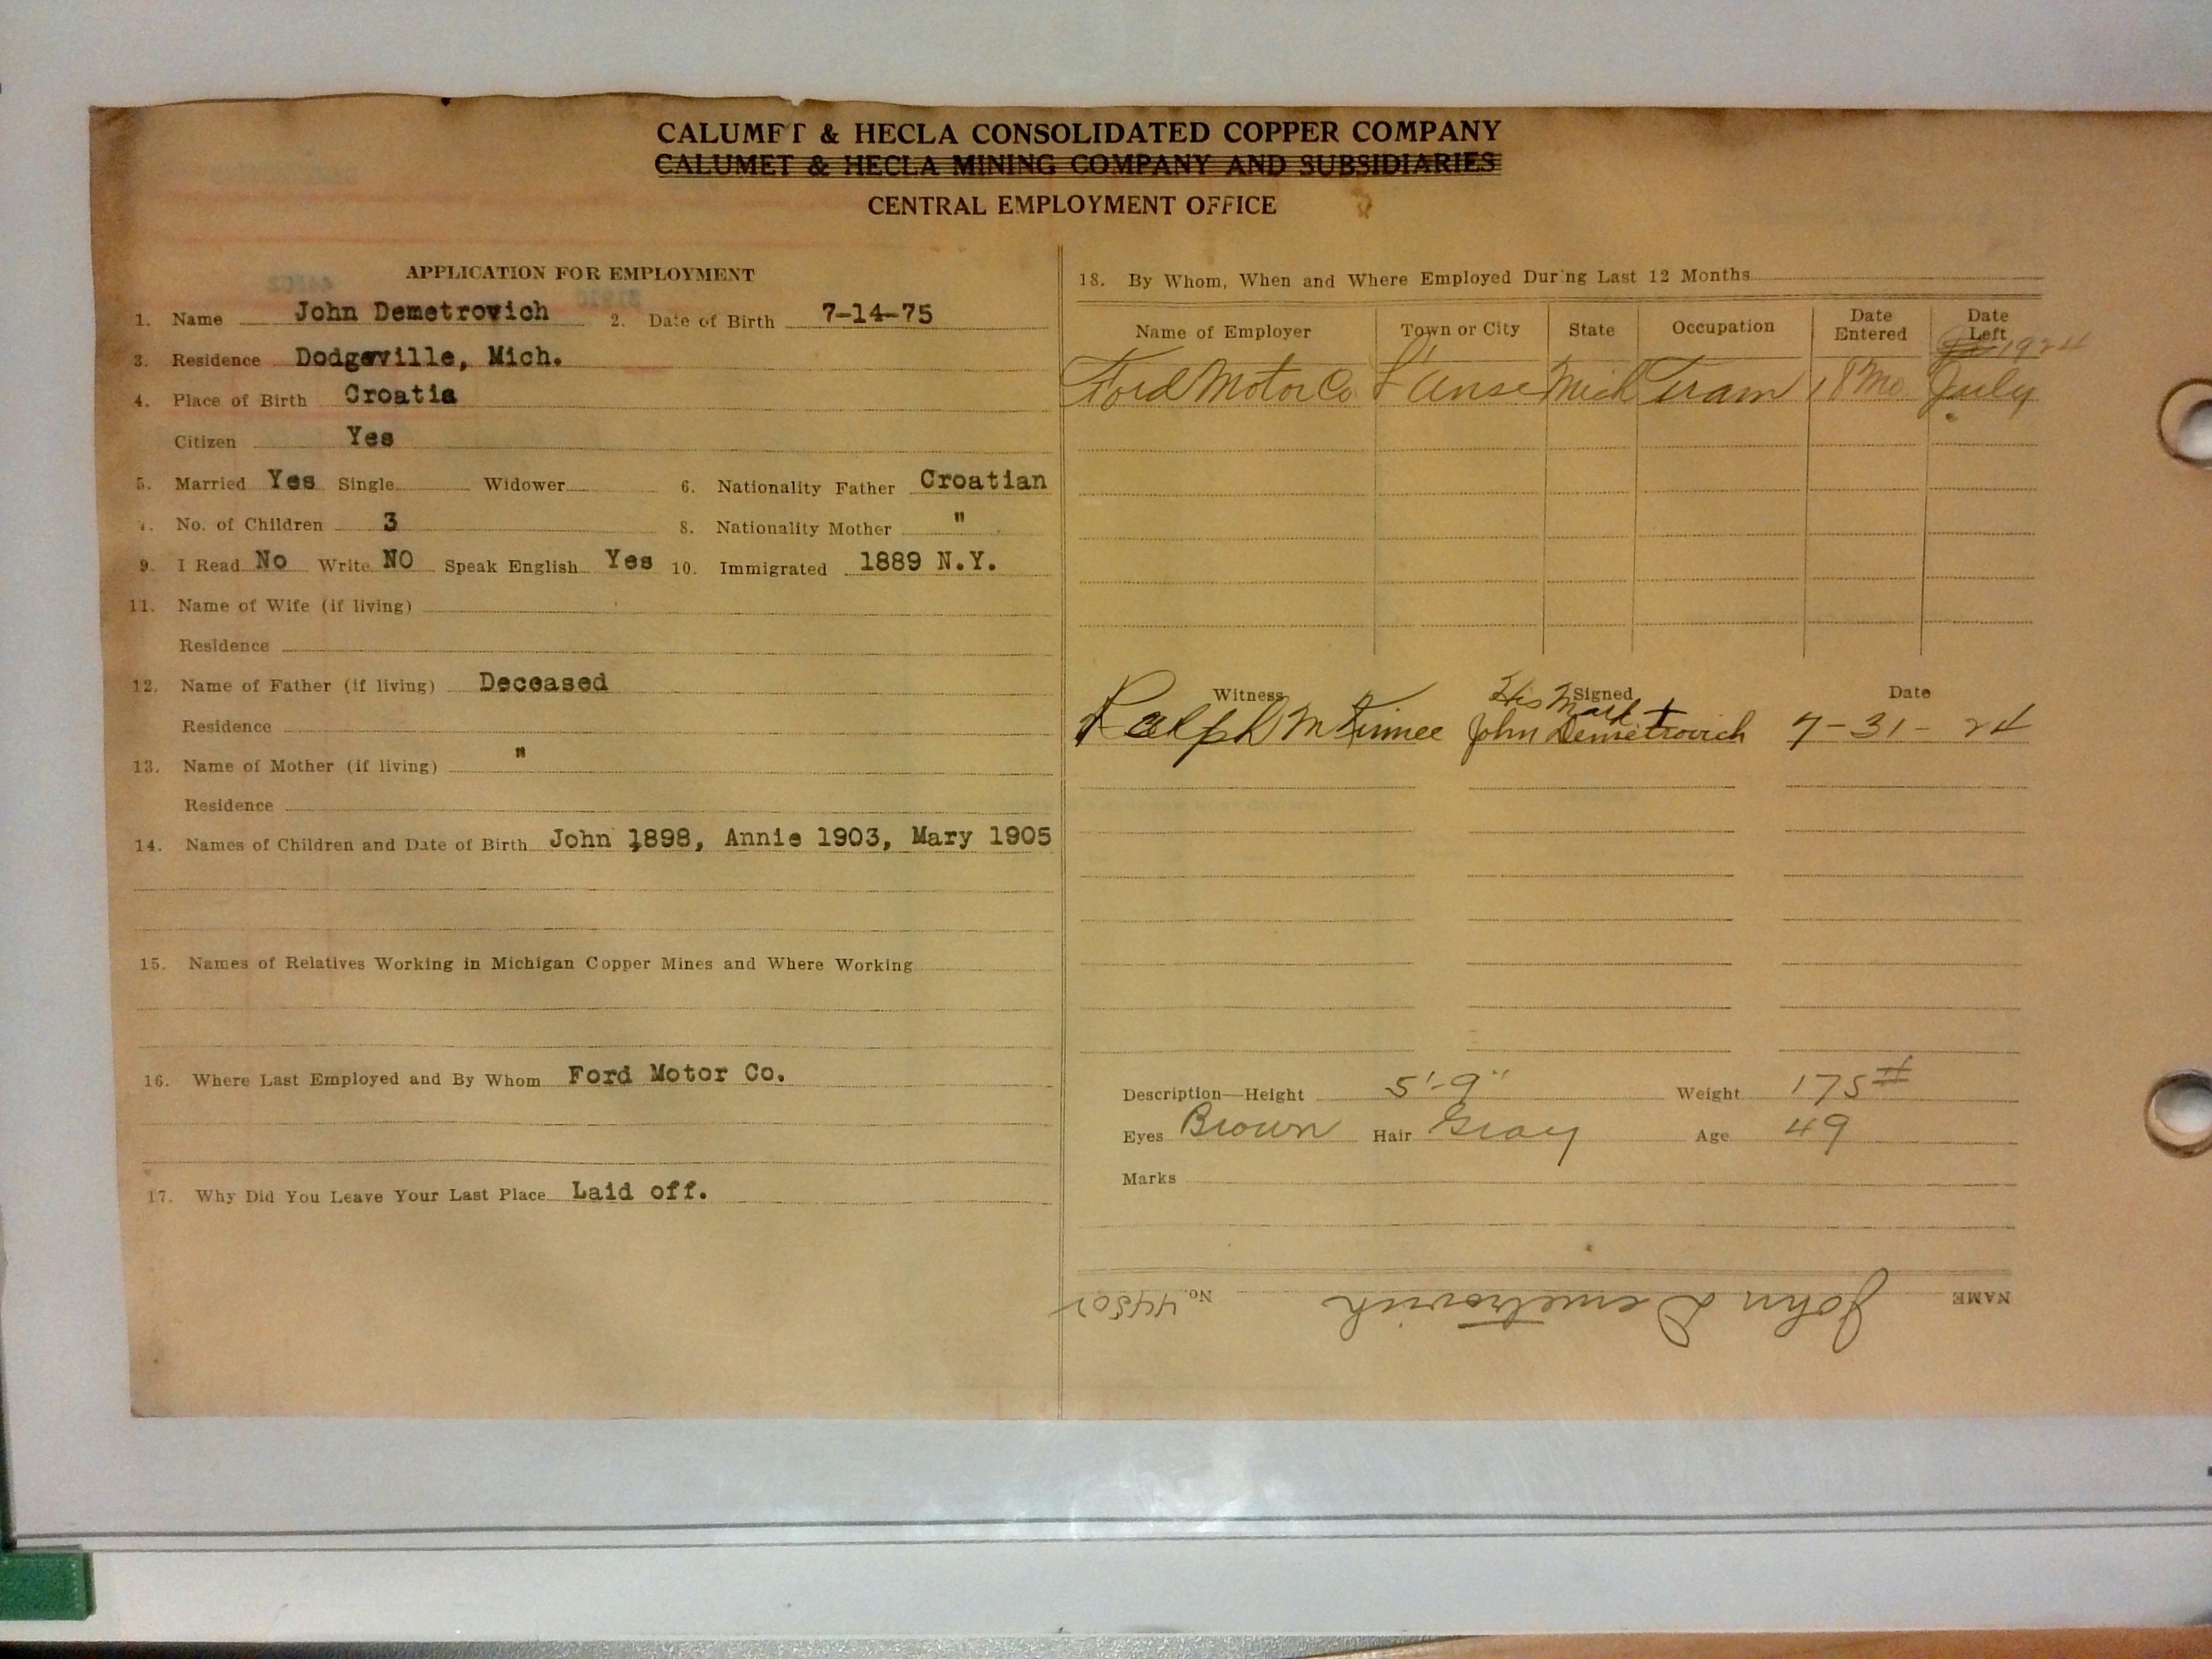 CALUMET & HECLA CONSOLIDATED COPPER COMPANY
CALUMET & HECLA MINING COMPANY AND SUBSIDIARIES
CENTRAL EMPLOYMENT OFFICE
APPLICATION FOR EMPLOYMENT
1. Name John Demetrovich 2. Date of Birth 7-14-75
3. Residence Dodgeville, Mich.
4. Place of Birth Croatia
Citizen Yes
5. Married Yes Single Widower 6. Nationality Father Croatian
7. No. of Children 3 8. Nationality Mother "
9. I Read No Write NO Speak English Yes 10. Immigrated 1889 N.Y.
11. Name of Wife (if living)
Residence
12. Name of Father (if living) Deceased
Residence
13. Name of Mother (if living) "
Residence
14. Names of Children and Date of Birth John 1898, Annie 1903, Mary 1905
15. Names of Relatives Working in Michigan Copper Mines and Where Working
16. Where Last Employed and By Whom Ford Motor Co.
17. Why Did You Leave Your Last Place Laid off.
18. By Whom, When and Where Employed During Last 12 Months
Name of Employer Town or City State Occupation Date Entered Date Left
1924
Ford Motor Co L'Anse Mich Tram 18 Mo. July
Witness Signed Date
His Mark +
Ralph McKinnee John Demetrovich 7-31-24
Description—Height 5'-9" Weight 175#
Eyes Brown Hair Gray Age 49
Marks
NAME John Demetrovich No. 44502